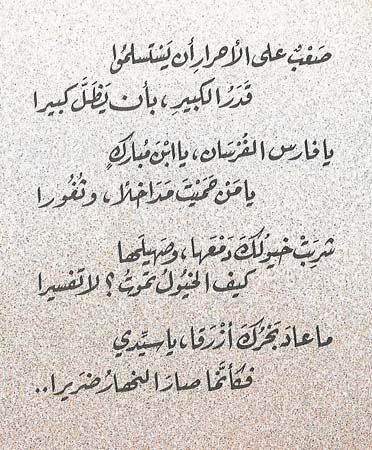 صَعْبٌ على الأحرارِ أن يَسْتسلمُوا
قَدَرُ الكبيرِ، بأن يَظَلَّ كبيرا
يا فارس الفُرْسَان، يا ابْنَ مُباركٍ
يا مَنْ حَمَيْتَ مَدَاخلًا، وثُغُورا
شرِبَتْ خيولُكَ دَمْعَها، وصَهيلَها
كيف الخيُولُ تموتُ؟ لا تفسيرا
ما عادَ بَحْرُكَ أزْرَقا، يا سيِّدي
فكأنَّما صارَ النهارُ ضَريرا..